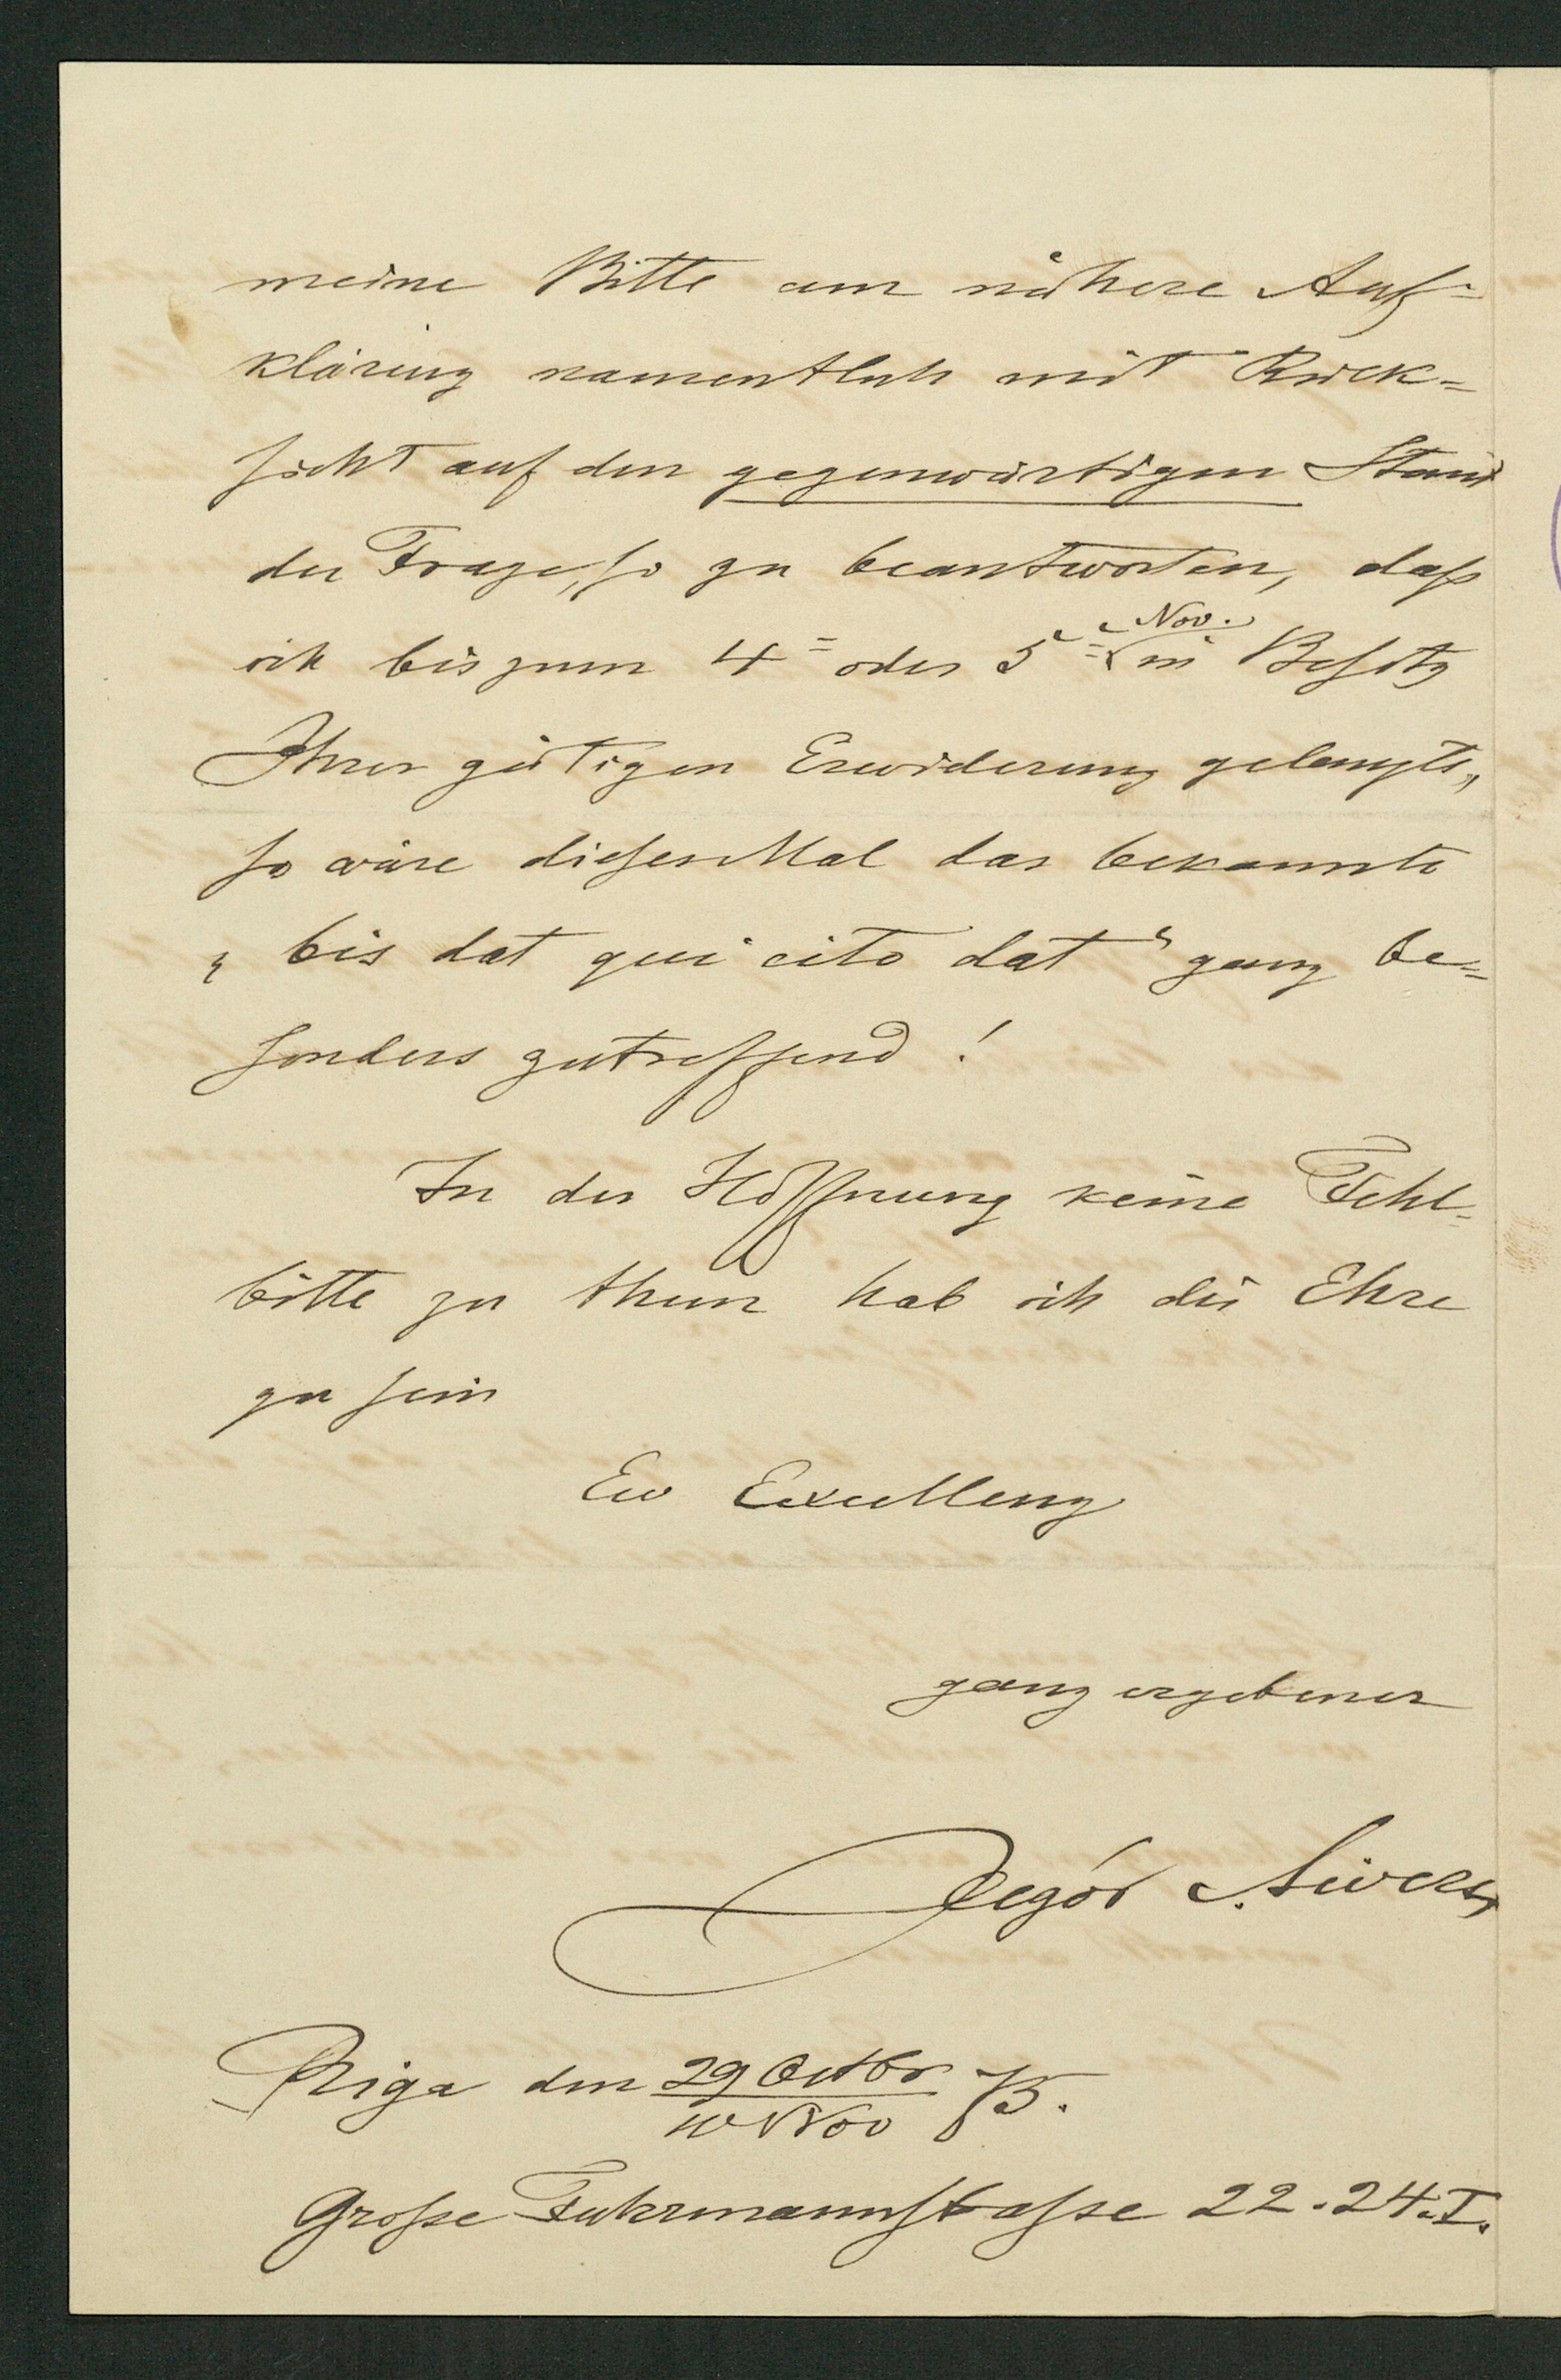 meine Bitte um nähere Auf-
klärung namentlich mit Rück-
sicht auf den gegenwärtigen Stand
der Frage, so zu beantworten, dass
ich bis zum 4= oder 5= Nov. in Besitz
Ihrer gütigen Erwiderung gelangte,
so wäre dieses Mal das bekannte
„bis dat qui cito dat“ ganz be-
sonders zutreffend!
In der Hoffnung keine Fehl-
bitte zu thun hab ich die Ehre
zu sein
Ew Excellenz
ganz ergebener
Jegór v. Sivers
Riga den 29 Octbr / 10 Nov 75.
Grosse Fuhrmannstrasse 22.24.I.